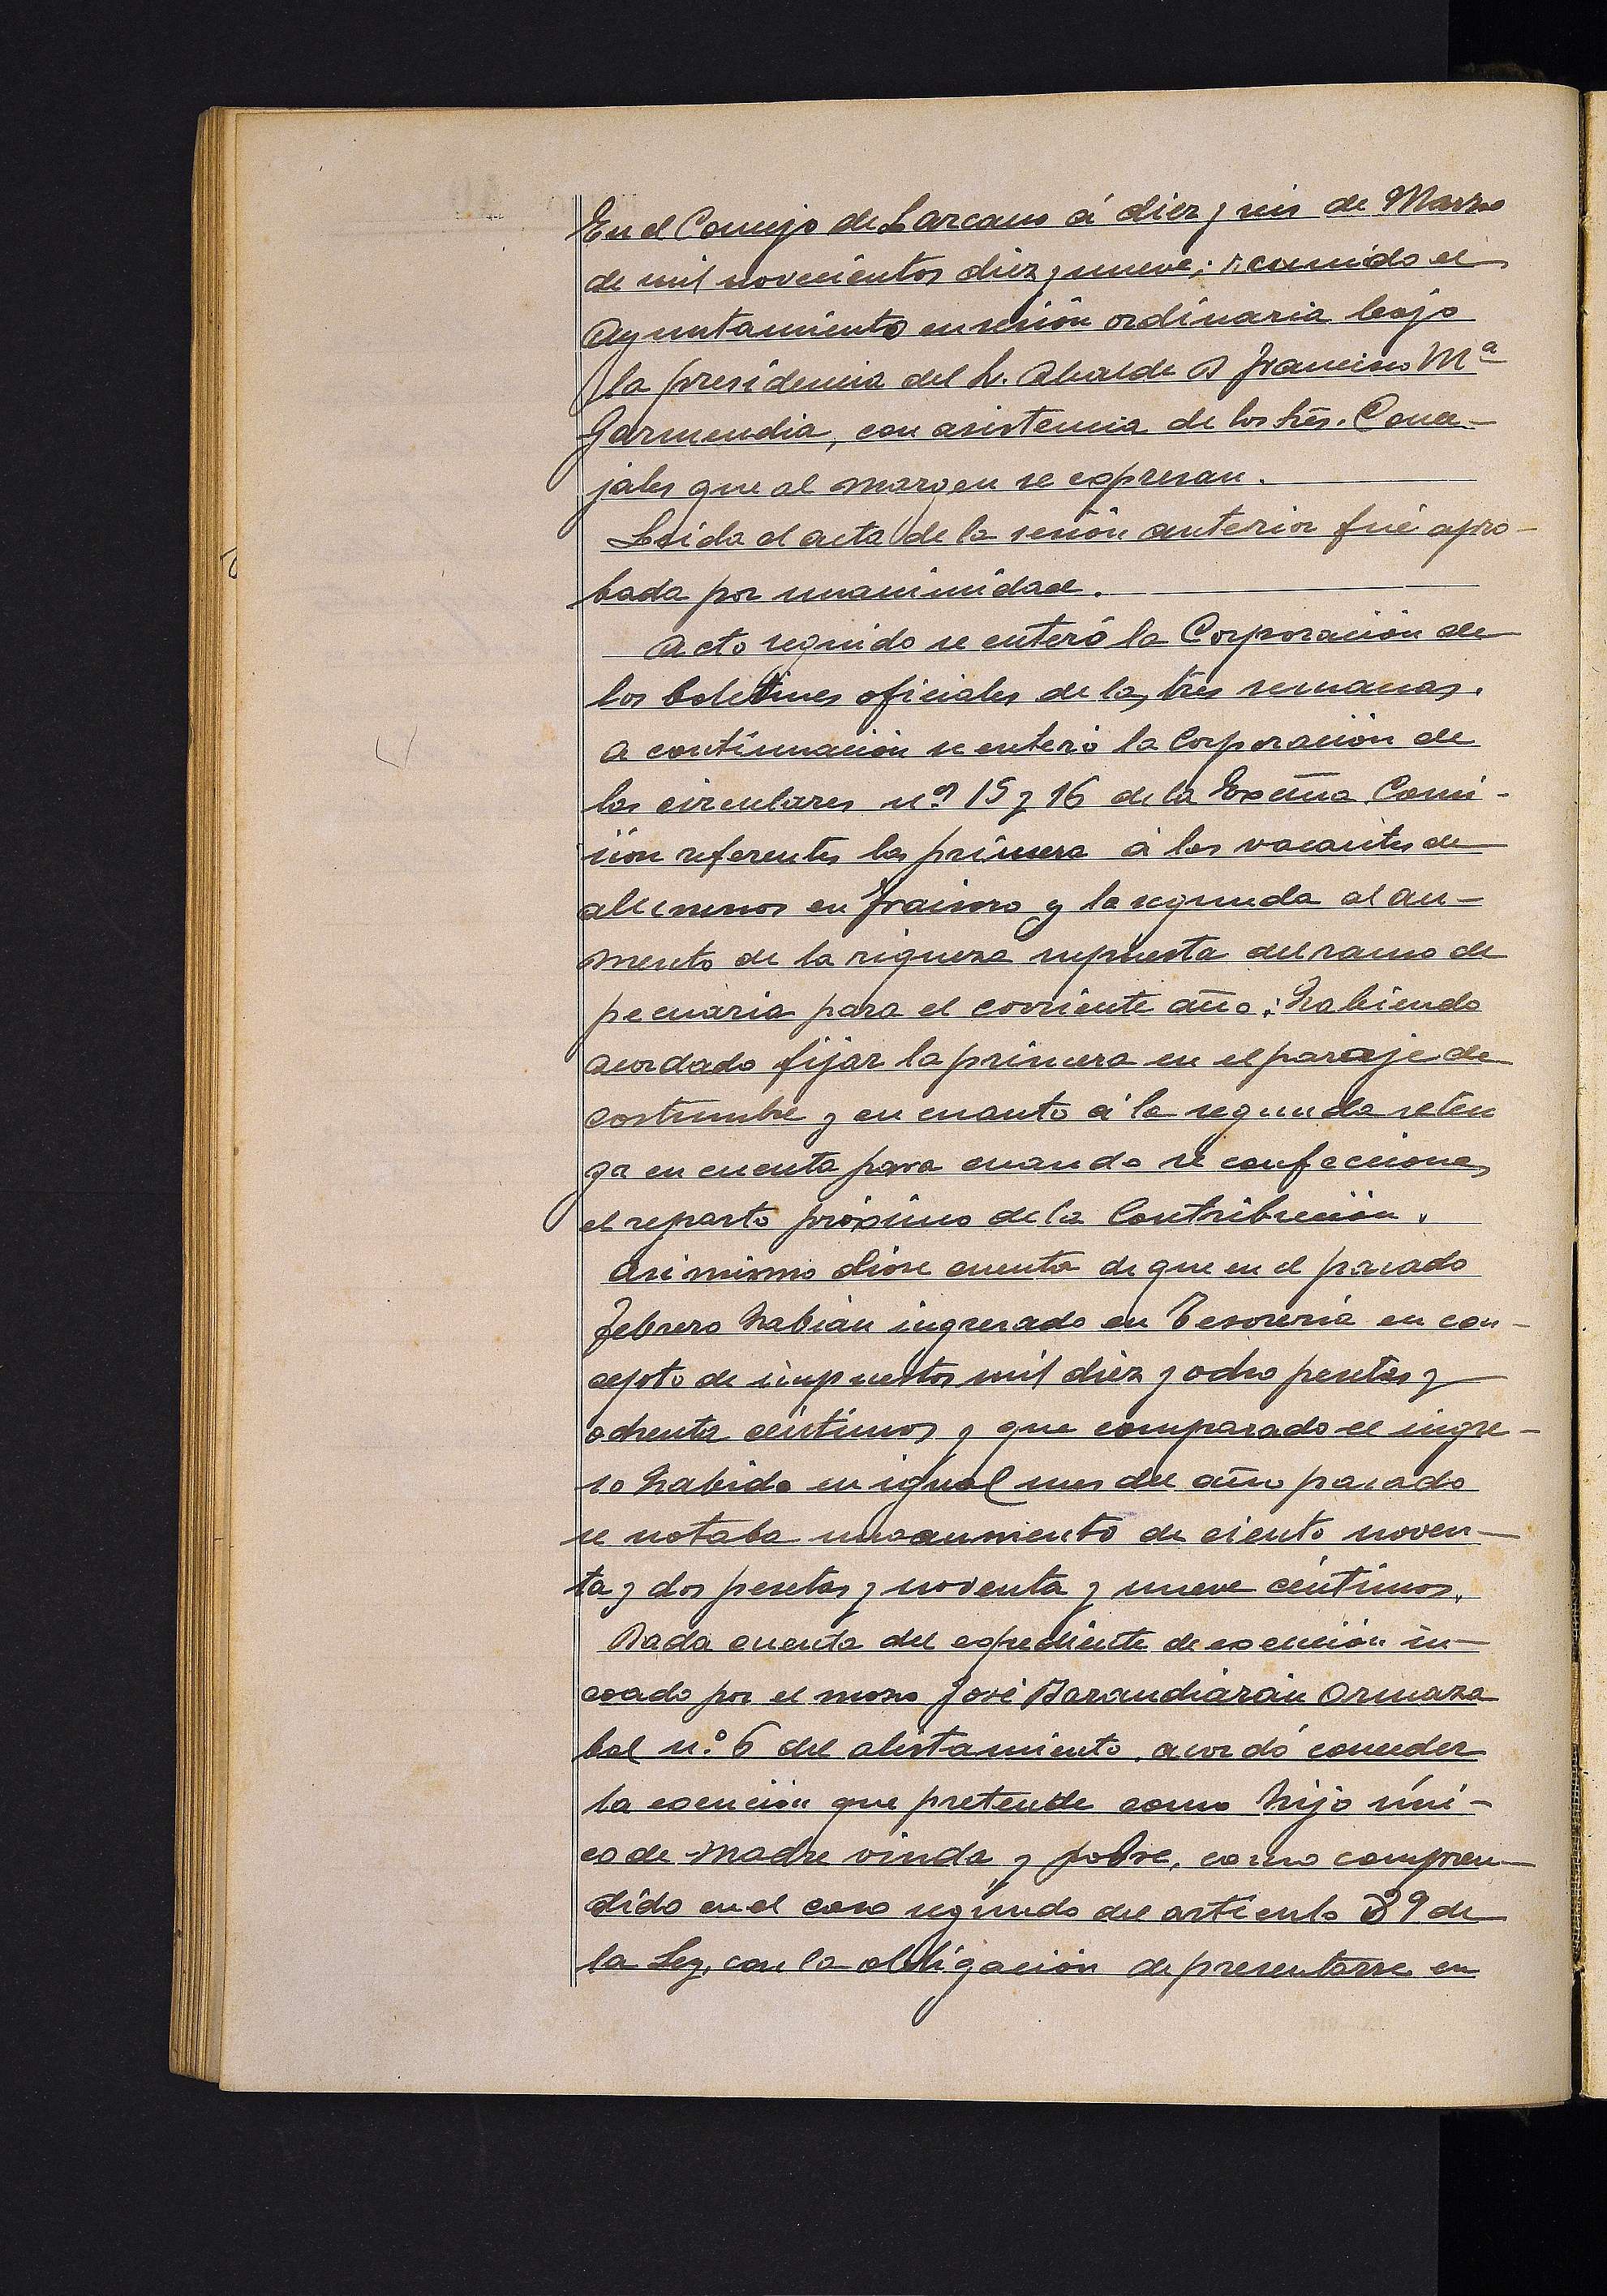 En el Concejo de Lazcano á diez y seis de Marzo
de mil novecientos diez y nueve; reunido el
Ayuntamiento en sesión ordinaria bajo
la presidencia del S. Alcalde D Francisco Mª
Garmendia, con asistencia de los Srēs. Conce-
jales que al margen se expresan.
Leida el acta de la sesión anterior fué apro-
bada por unanimidad.
Acto seguido se enteró la Corporación de
los boletines oficiales de las tres semanas.
A continuación se enteró la Corporación de
las circulares nos 15 y 16 de la Excma Comi-
sión referentes la primera á las vacantes de
alumnos en Fraisoro y la segunda al au-
mento de la riqueza supuesta del ramo de
pecuaria para el corriente año; habiendo
acordado fijar la primera en el paraje de
costumbre y en cuanto á la segunda se ten
ga en cuenta para cuando se confecciona
el reparto próximo de la Contribución.
Asi mismo dióse cuenta de que en el pasado
Febrero habian ingresado en Tesoreria en con-
cepto de impuestos mil diez y ocho pesetas y
ochenta céntimos y que comparado el ingre-
so habido en igual mes del año pasado
se notaba un aumento de ciento noven-
ta y dos pesetas y noventa y nueve céntimos.
Dada cuenta del expediente de exención in-
coado por el mozo José Barandiarán Ormaza
bal n.º 6 del alistamiento, acordó conceder
la exención que pretende como hijo úni-
co de madre viuda y pobre, como compren-
dido en el caso segundo del artículo 89 de
la Ley, con la obligación de presentarse en